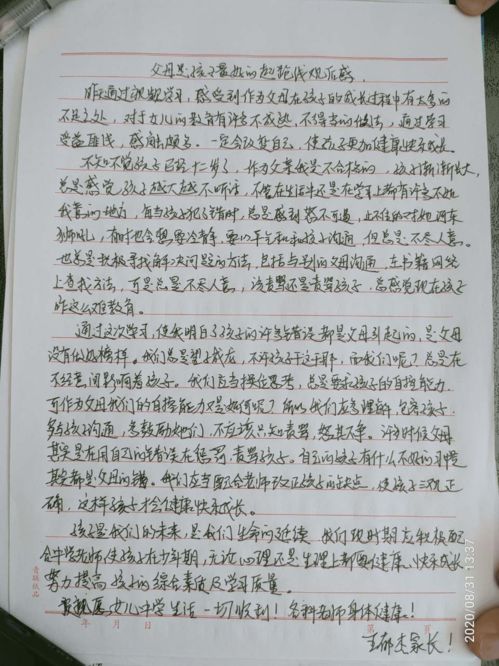 父母是孩子最好的起跑线观后感
昨天通过视频学习，感受到作为父母在孩子的成长过程中有太多的
不足之处，对于女儿的教育有许多不成熟、不得当的做法，通过学习
受益匪浅，感触颇多。一定会改变自己，使孩子更加健康快乐成长。
不知不觉孩子已经十二岁了，作为父亲我是不合格的，孩子渐渐长大，
总是感觉孩子越大越不听话，不管在生活中还是在学习上都有许多不如
我意的地方，每当孩子犯了错时，总是感到怒不可遏，止不住的对她河东
狮吼，有时也会想要冷静，要心平气和和孩子沟通，但总是不尽人意。
也总是积极寻找解决问题的方法，包括与别的父母沟通，在书籍网络
上查找方法，可是总是不尽人意，该责骂还是责骂孩子，总感觉现在孩子
咋这么难教育。
通过这次学习，使我明白了孩子的许多错误都是父母引起的，是父母
没有做好榜样。我们总是望子成龙，不许孩子干这干那，而我们呢？总是在
不经意间影响着孩子。我们应当换位思考，总是要求孩子的自控能力，
可作为父母我们的自控能力又是如何呢？所以我们应多理解，包容孩子，
多与孩子沟通，多鼓励她们，不应该只知责骂，怒其不争。许多时候父母
其实是在用自己的错误在惩罚、责骂孩子。自己的孩子有什么不好的习惯
其实都是父母的错。我们应当配合老师改正孩子的缺点，使孩子三观正
确，这样孩子才会健康快乐成长。
孩子是我们的未来，是我们生命的延续，我们现时期应积极配
合中学老师，使孩子在少年期，无论心理还是生理上都要健康、快乐成长，
努力提高孩子的综合素质及学习质量。
最后愿女儿中学生活一切顺利！各科老师身体健康！
王郁杰家长！
青联纸品
年 月 日
第 页
2020/08/31 13:37